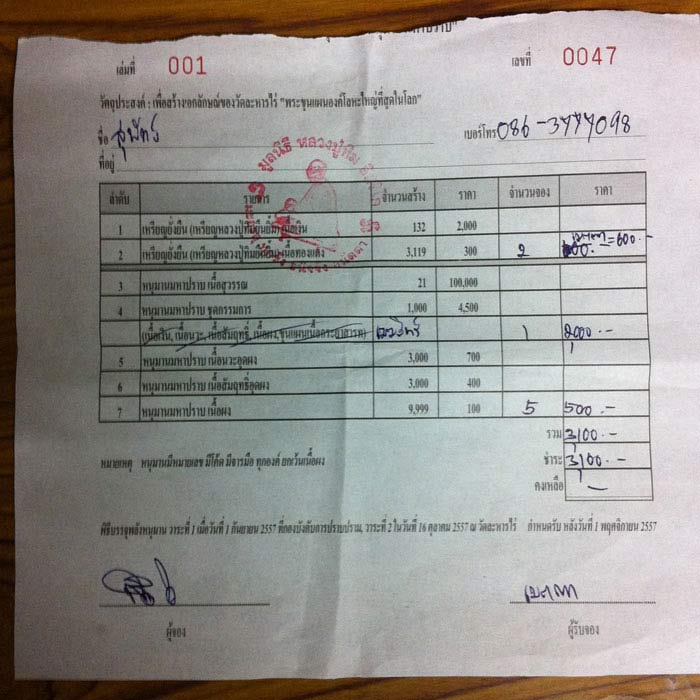 เล่มที่ 001 เลขที่ 0047
วัตถุประสงค์ : เพื่อสร้างเอกลักษณ์ของวัดละหารไร่ "พระขุนแผนองค์โลหะใหญ่ที่สุดในโลก"
ชื่อ สุพัทร์ เบอร์โทร 086-3777098
ที่อยู่
ลำดับ รายการ จำนวนสร้าง ราคา จำนวนจอง ราคา
1 เหรียญยั่งยืน (เหรียญหลวงปู่ทิมยืนยิ้ม) เนื้อเงิน 132 2,000
2 เหรียญยั่งยืน (เหรียญหลวงปู่ทิมยืนยิ้ม) เนื้อทองแดง 3,119 300 2 =600.-
3 หนุมานมหาปราบ เนื้อสุวรรณ 21 100,000
4 หนุมานมหาปราบ ชุดกรรมการ 1,000 4,500
(เนื้อเงิน, เนื้อนวะ, เนื้อสัมฤทธิ์, เนื้อผง, ขุนแผนเนื้อกระยาสารท) 1 2000.-
5 หนุมานมหาปราบ เนื้อนวะอุดผง 3,000 700
6 หนุมานมหาปราบ เนื้อสัมฤทธิ์อุดผง 3,000 400
7 หนุมานมหาปราบ เนื้อผง 9,999 100 5 500.-
รวม 3,100.-
หมายเหตุ หนุมานมีหมายเลข มีโค้ด มีจารมือ ทุกองค์ ยกเว้นเนื้อผง ชำระ 3,100.-
คงเหลือ -
พิธีบรรจุพลังหนุมาน วาระที่ 1 เมื่อวันที่ 1 กันยายน 2557 ที่กองบังคับการปราบปราม, วาระที่ 2 ในวันที่ 16 ตุลาคม 2557 ณ วัดละหารไร่ กำหนดรับ หลังวันที่ 1 พฤศจิกายน 2557
ผู้จอง ผู้รับจอง